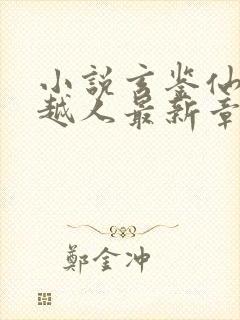 小説玄鉴仙
越人最新章
鄭金冲